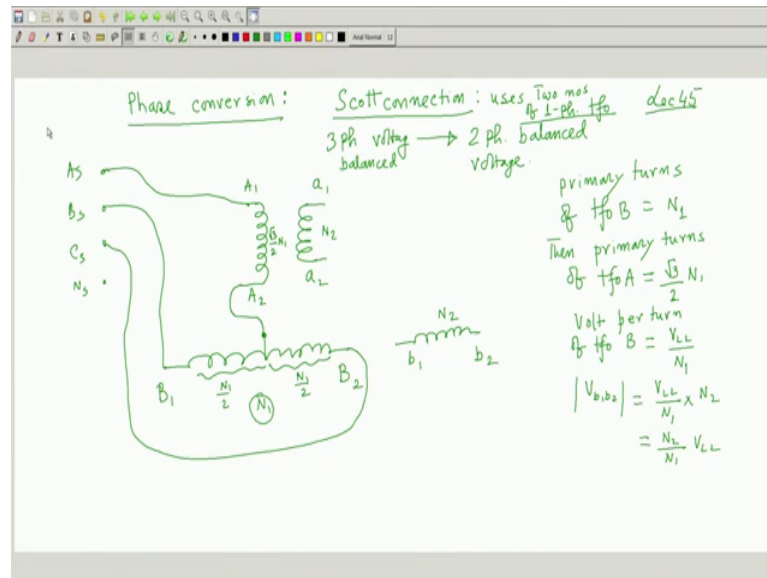 Arial Normal 12
Phase conversion :
Scott connection : uses Two nos
of 1-ph. tfo
Lec 45
3 Ph voltag → 2 Ph. balanced
balanced voltage.
As
Bs
Cs
Ns
A1
√3/2 N1
A2
a1
N2
a2
B1
N1/2
N1/2
B2
N1
N2
b1
b2
primary turns
of tfo B = N1
Then primary turns
of tfo A = √3/2 N1
Volt per turn
of tfo B = VLL/N1
|Vb1b2| = VLL/N1 × N2
= N2/N1 VLL